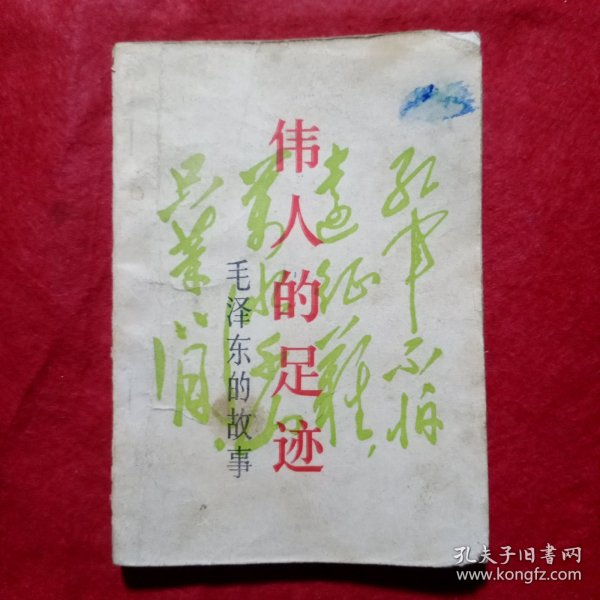 伟人的足迹
毛泽东的故事
红军不怕
远征难，
万水千
只等闲
孔夫子旧书网
www.kongfz.com